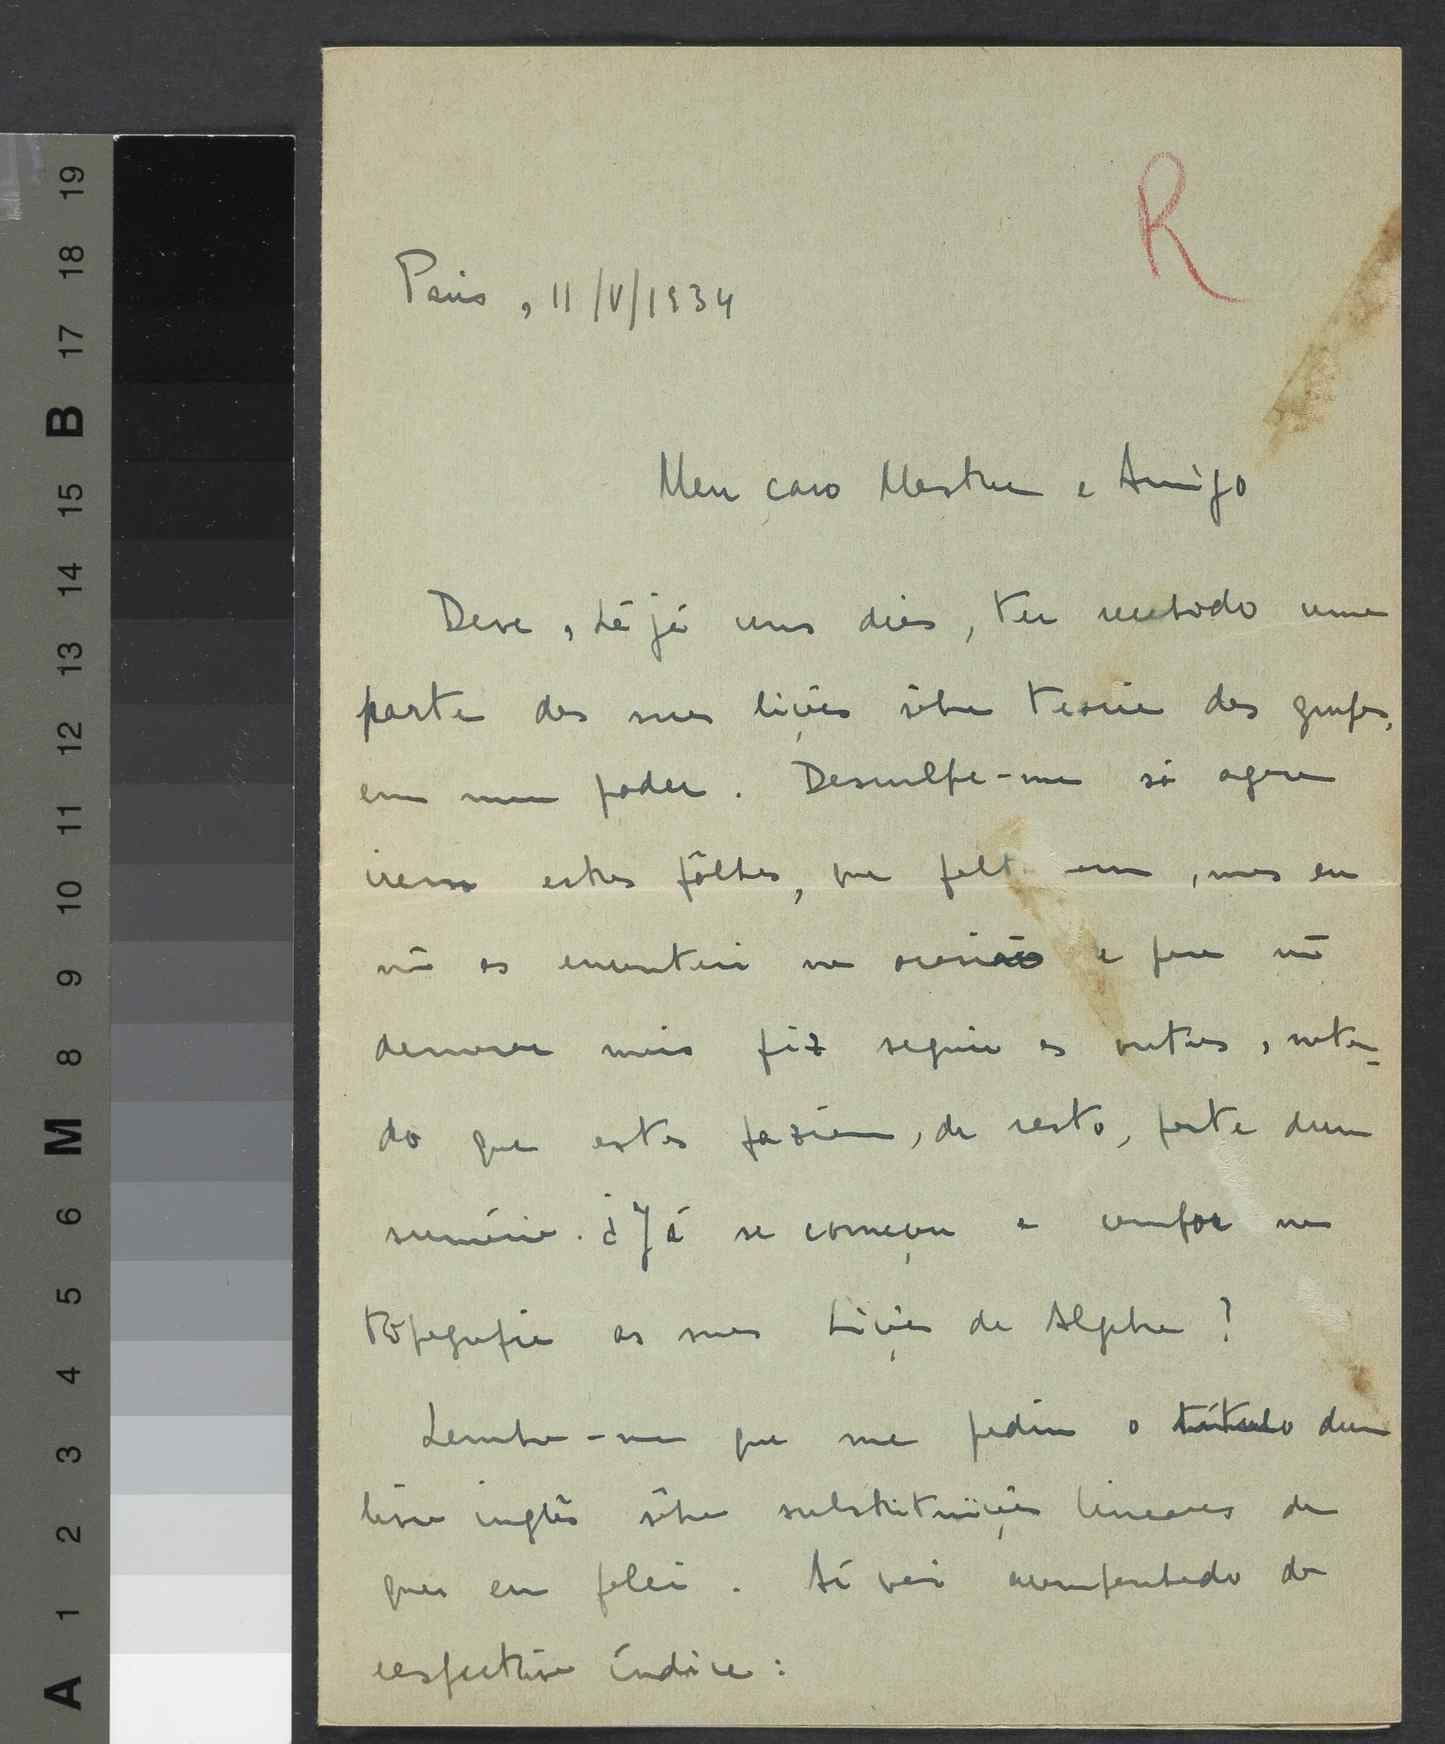 R
Paris, 11/V/1934
Meu caro Mestre e Amigo
Deve, há já uns dias, ter recebido uma
parte das suas lições sôbre teoria dos grupos,
em meu poder. Desculpe-me só agora
irem estas fôlhas, que faltavam, mas eu
não as encontrei na ocasião e para não
demorar mais fiz seguir as outras, notan-
do que estas faziam, de resto, parte dum
sumário. ¿Já se começou a compor na
tipografia as suas Lições de Algebra?
Lembro-me que me pediu o título dum
livro inglês sôbre substituições lineares de
que eu falei. Aí vai acompanhado do
respectivo índice:
A 1 2 3 4 5 6 M 8 9 10 11 12 13 14 15 B 17 18 19